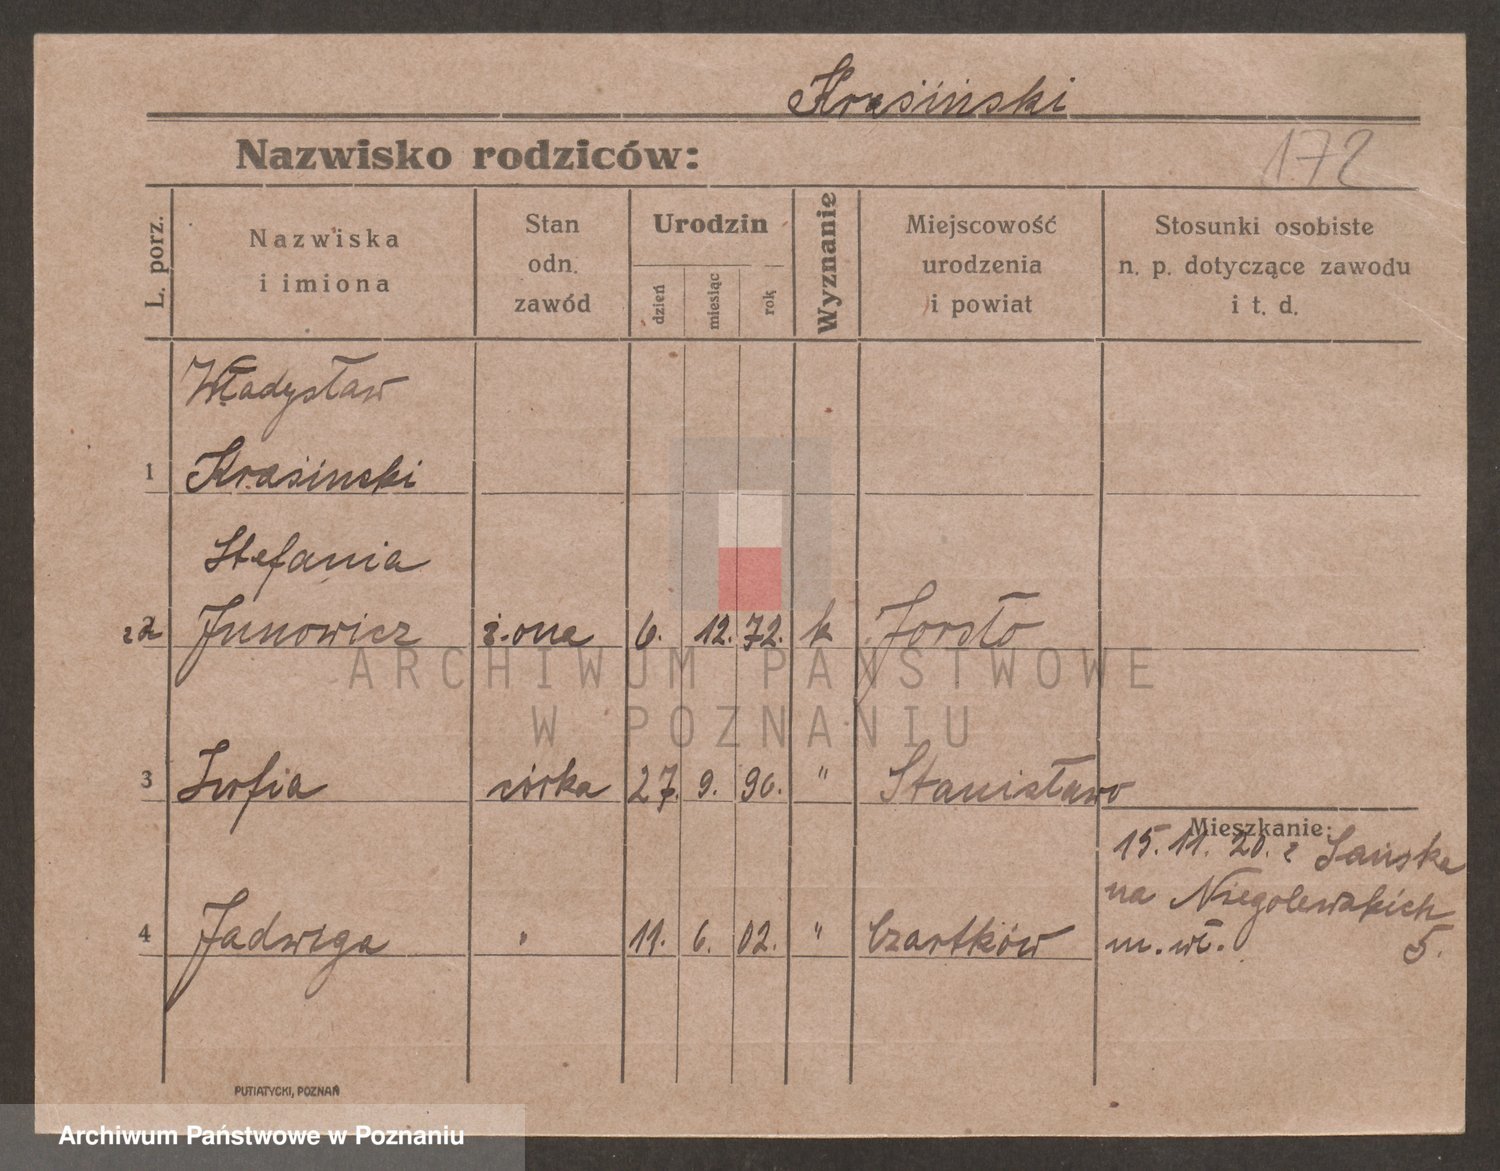 Kraśiński
Nazwisko rodziców:
172
L. porz.
Nazwiska
i imiona
Stan
odn.
zawód
Urodzin
dzień
miesiąc
rok
Wyznanie
Miejscowość
urodzenia
i powiat
Stosunki osobiste
n. p. dotyczące zawodu
i t. d.
Władysław
1 Krasiński
Stefania
2 Junowicz ż.ona 6. 12. 72. k Jorsło
ARCHIWUM PAŃSTWOWE
W POZNANIU
3 Zofia córka 27. 9. 90. " Stanisławo
Mieszkanie:
15. 11. 20. z
na Niegolewskich
4 Jadwiga " 11. 6. 02. " Czartków m. wł. 5.
PUTIATYCKI, POZNAŃ
Archiwum Państwowe w Poznaniu